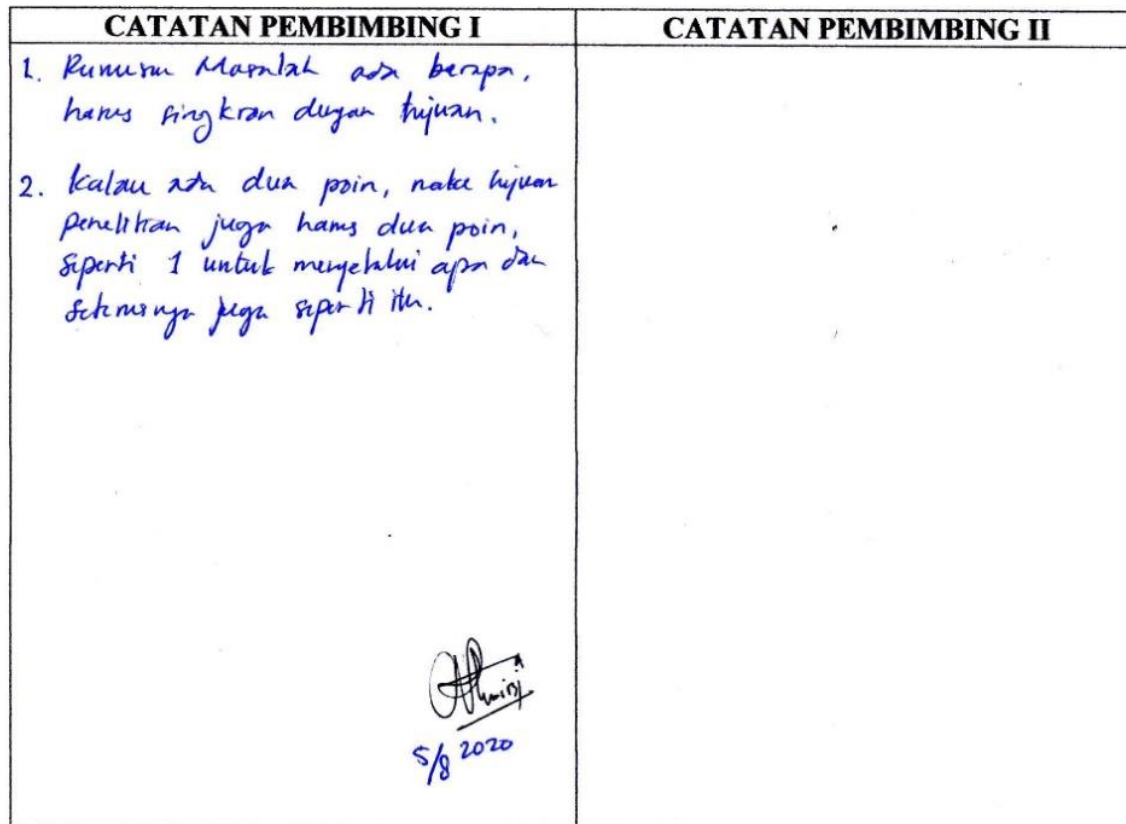 CATATAN PEMBIMBING I
CATATAN PEMBIMBING II
1. Rumusan Masalah ada berapa,
harus singkron dengan tujuan.
2. Kalau ada dua poin, maka tujuan
penelitian juga harus dua poin,
seperti 1 untuk mengetahui apa dan
seterusnya juga seperti itu.
5/8 2020